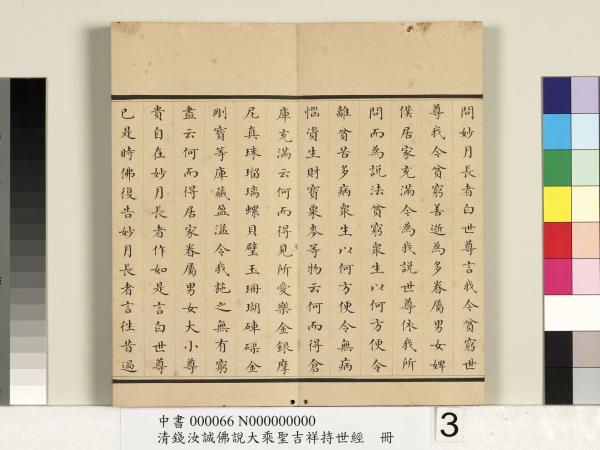 問妙月長者白世尊言我今貧窮世
尊我今貧窮善逝為多眷屬男女婢
僕居家充滿令為我說世尊依我所
問而為說法貧窮眾生以何方便令
離貧苦多病眾生以何方便令無病
惱資生財寶粟麥等物云何而得倉
庫充滿云何而得見所愛樂金銀摩
尼真珠瑠璃螺貝璧玉珊瑚硨磲金
剛寶等庫藏盈溢令我施之無有窮
盡云何而得居家眷屬男女大小尊
貴自在妙月長者作如是言白世尊
已是時佛復告妙月長者言往昔過
中書 000066 N000000000
清錢汝誠佛說大乘聖吉祥持世經 冊
3